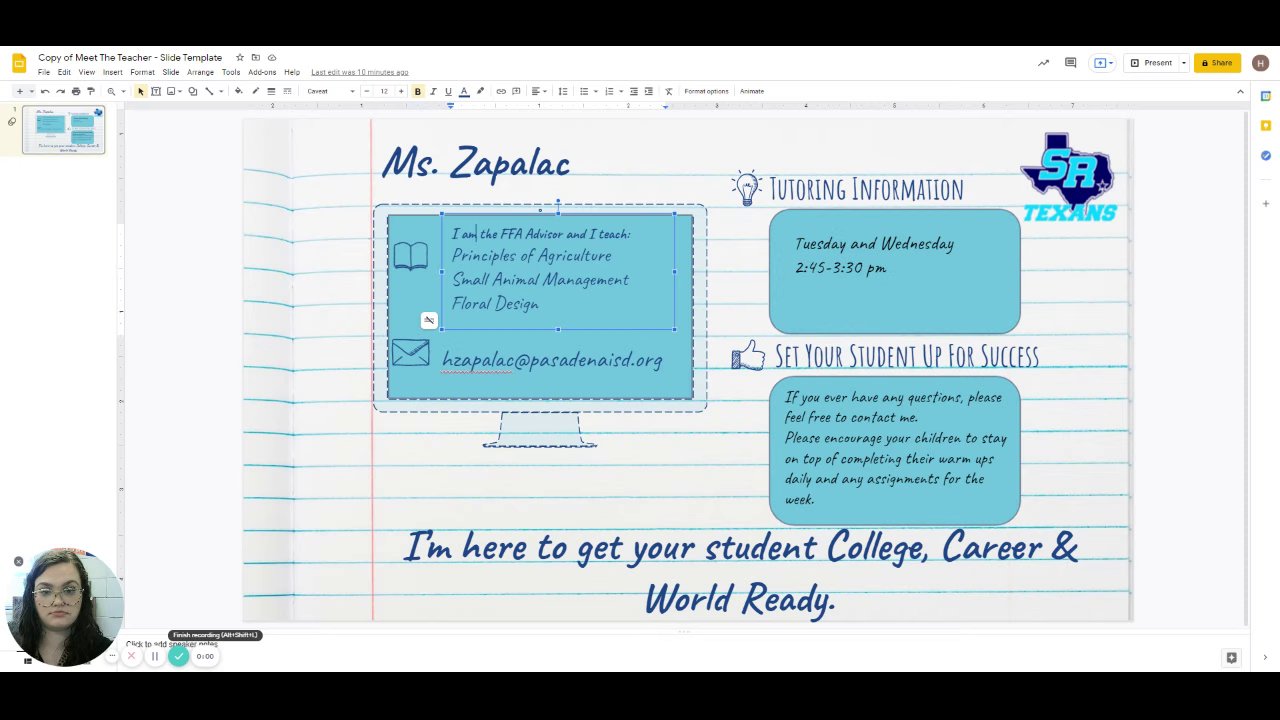 Copy of Meet The Teacher - Slide Template
File Edit View Insert Format Slide Arrange Tools Add-ons Help Last edit was 10 minutes ago
Present
Share
H
Caveat
12
B I U A
Format options
Animate
2 1 1 2 3 4 5 6 7
1
Ms. Zapalac
I am the FFA Advisor and I teach:
Principles of Agriculture
Small Animal Management
Floral Design
hzapalac@pasadenaisd.org
Tutoring Information
SR
TEXANS
Tuesday and Wednesday
2:45-3:30 pm
Set Your Student Up For Success
If you ever have any questions, please
feel free to contact me.
Please encourage your children to stay
on top of completing their warm ups
daily and any assignments for the
week.
I'm here to get your student College, Career &
World Ready.
Finish recording (Alt+Shift+L)
Click to add speaker notes
0:00